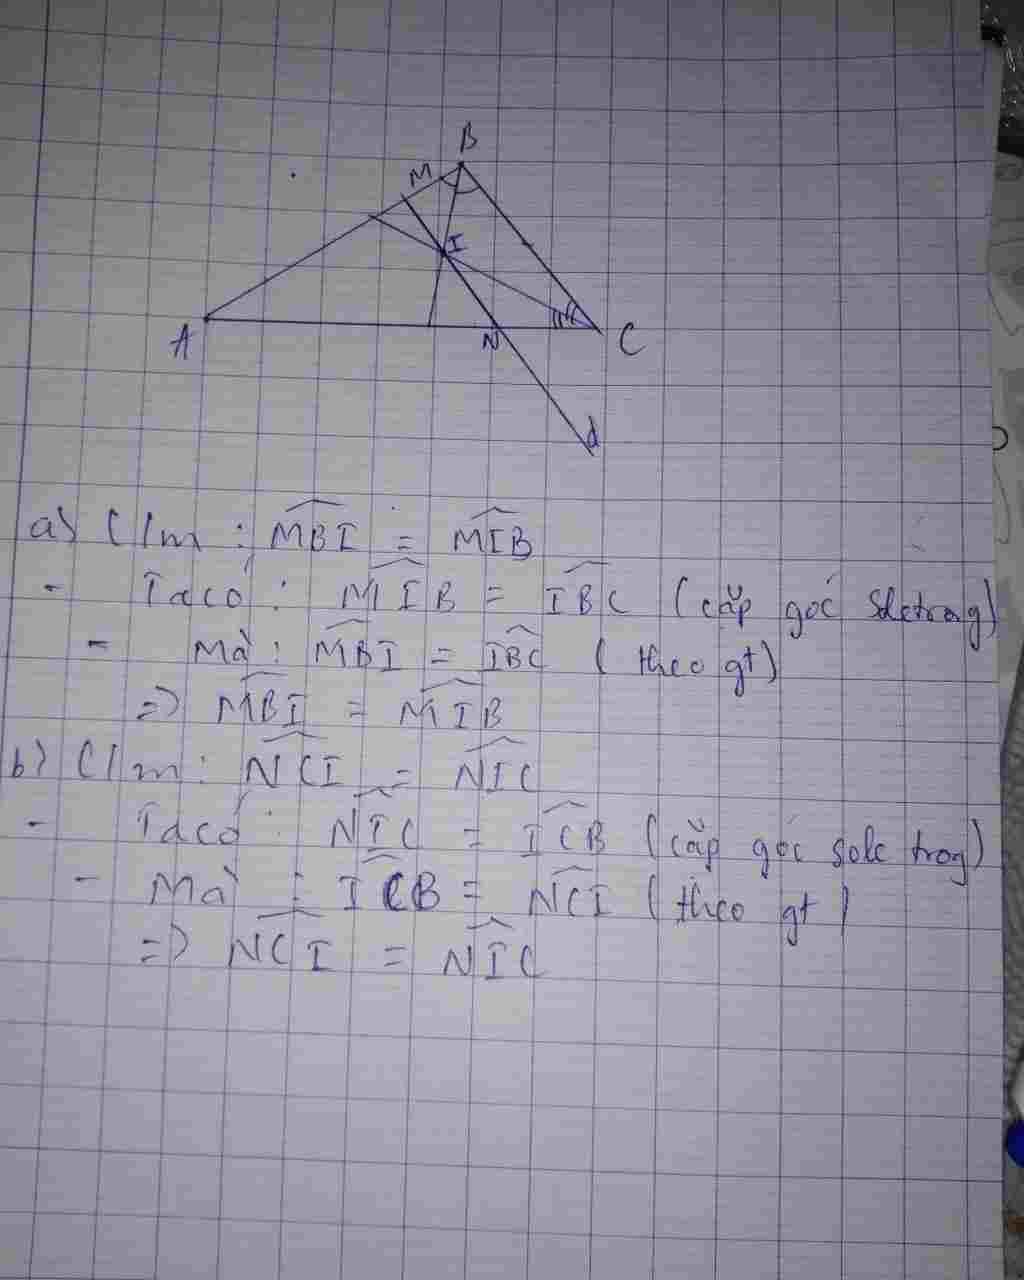 B
M
I
A
N
C
d
a) C/m : MBI = MIB
- Ta có : MIB = IBC (cặp góc solctrog)
- Mà : MBI = IBC ( theo gt)
=> MBI = MIB
b) C/m : NCI = NIC
- Ta có : NIC = ICB (cặp góc solc trog)
- Mà : ICB = NCI ( theo gt )
=> NCI = NIC